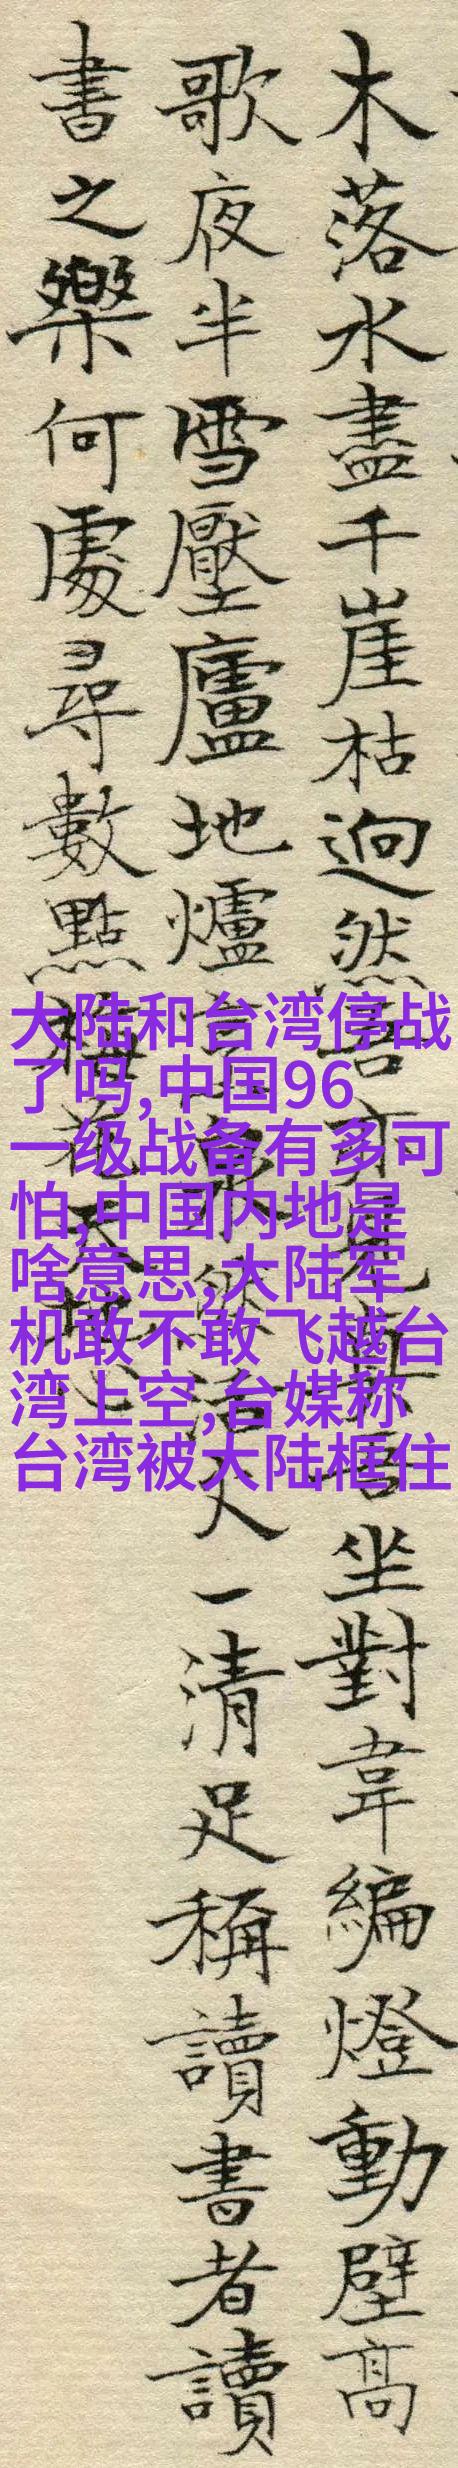 木落水盡千崖枯迥然吾亦見真吾坐對韋編燈動壁高
歌夜半雪壓廬地爐活火一清足稱讀書者讀
書之樂何處尋數點梅花天地心
大陆和台湾停战
了吗,中国96
一级战备有多可
怕,中国内地是
啥意思,大陆军
机敢不敢飞越台
湾上空,台媒称
台湾被大陆框住